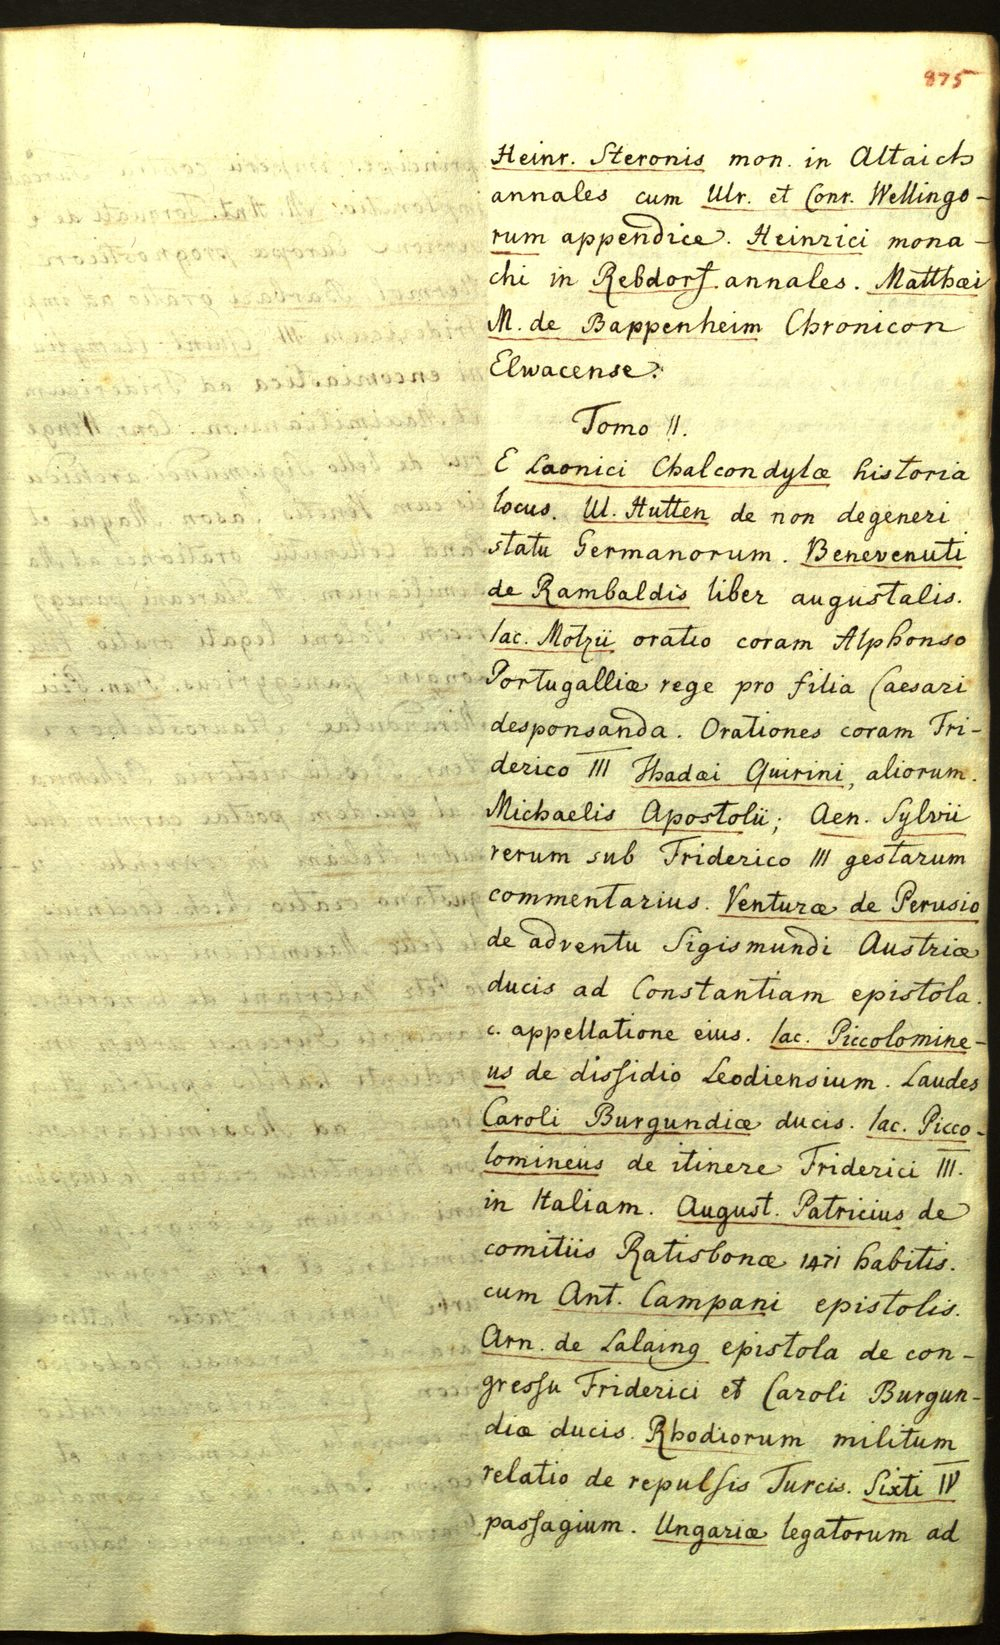 875
Heinr. Steronis mon. in Altaich
annales cum Ulr. et Conr. Wellingo-
rum appendice. Heinrici mona-
chi in Rebdorf annales. Matthæi
M. de Bappenheim Chronicon
Elwacense.
Tomo II.
E Laonici Chalcondylæ historia
locus. Ul. Hutten de non degeneri
statu Germanorum. Benevenuti
de Rambaldis liber augustalis.
Iac. Motzii oratio coram Alphonso
Portugalliæ rege pro filia Caesari
desponsanda. Orationes coram Fri-
derico III Thadæi Quirini, aliorum.
Michaelis Apostolii; Aen. Sylvii
rerum sub Friderico III gestarum
commentarius. Venturæ de Perusio
de adventu Sigismundi Austriæ
ducis ad Constantiam epistola.
c. appellatione eius. Iac. Piccolomine-
us de dissidio Leodiensium. Laudes
Caroli Burgundiæ ducis. Iac. Picco-
lomineus de itinere Friderici III.
in Italiam. August. Patricius de
comitiis Ratisbonæ 1471 habitis.
cum Ant. Campani epistolis.
Arn. de Lalaing epistola de con-
gressu Friderici et Caroli Burgun-
diæ ducis. Rhodiorum militum
relatio de repulsis Turcis. Sixti IV
passagium. Ungariæ legatorum ad